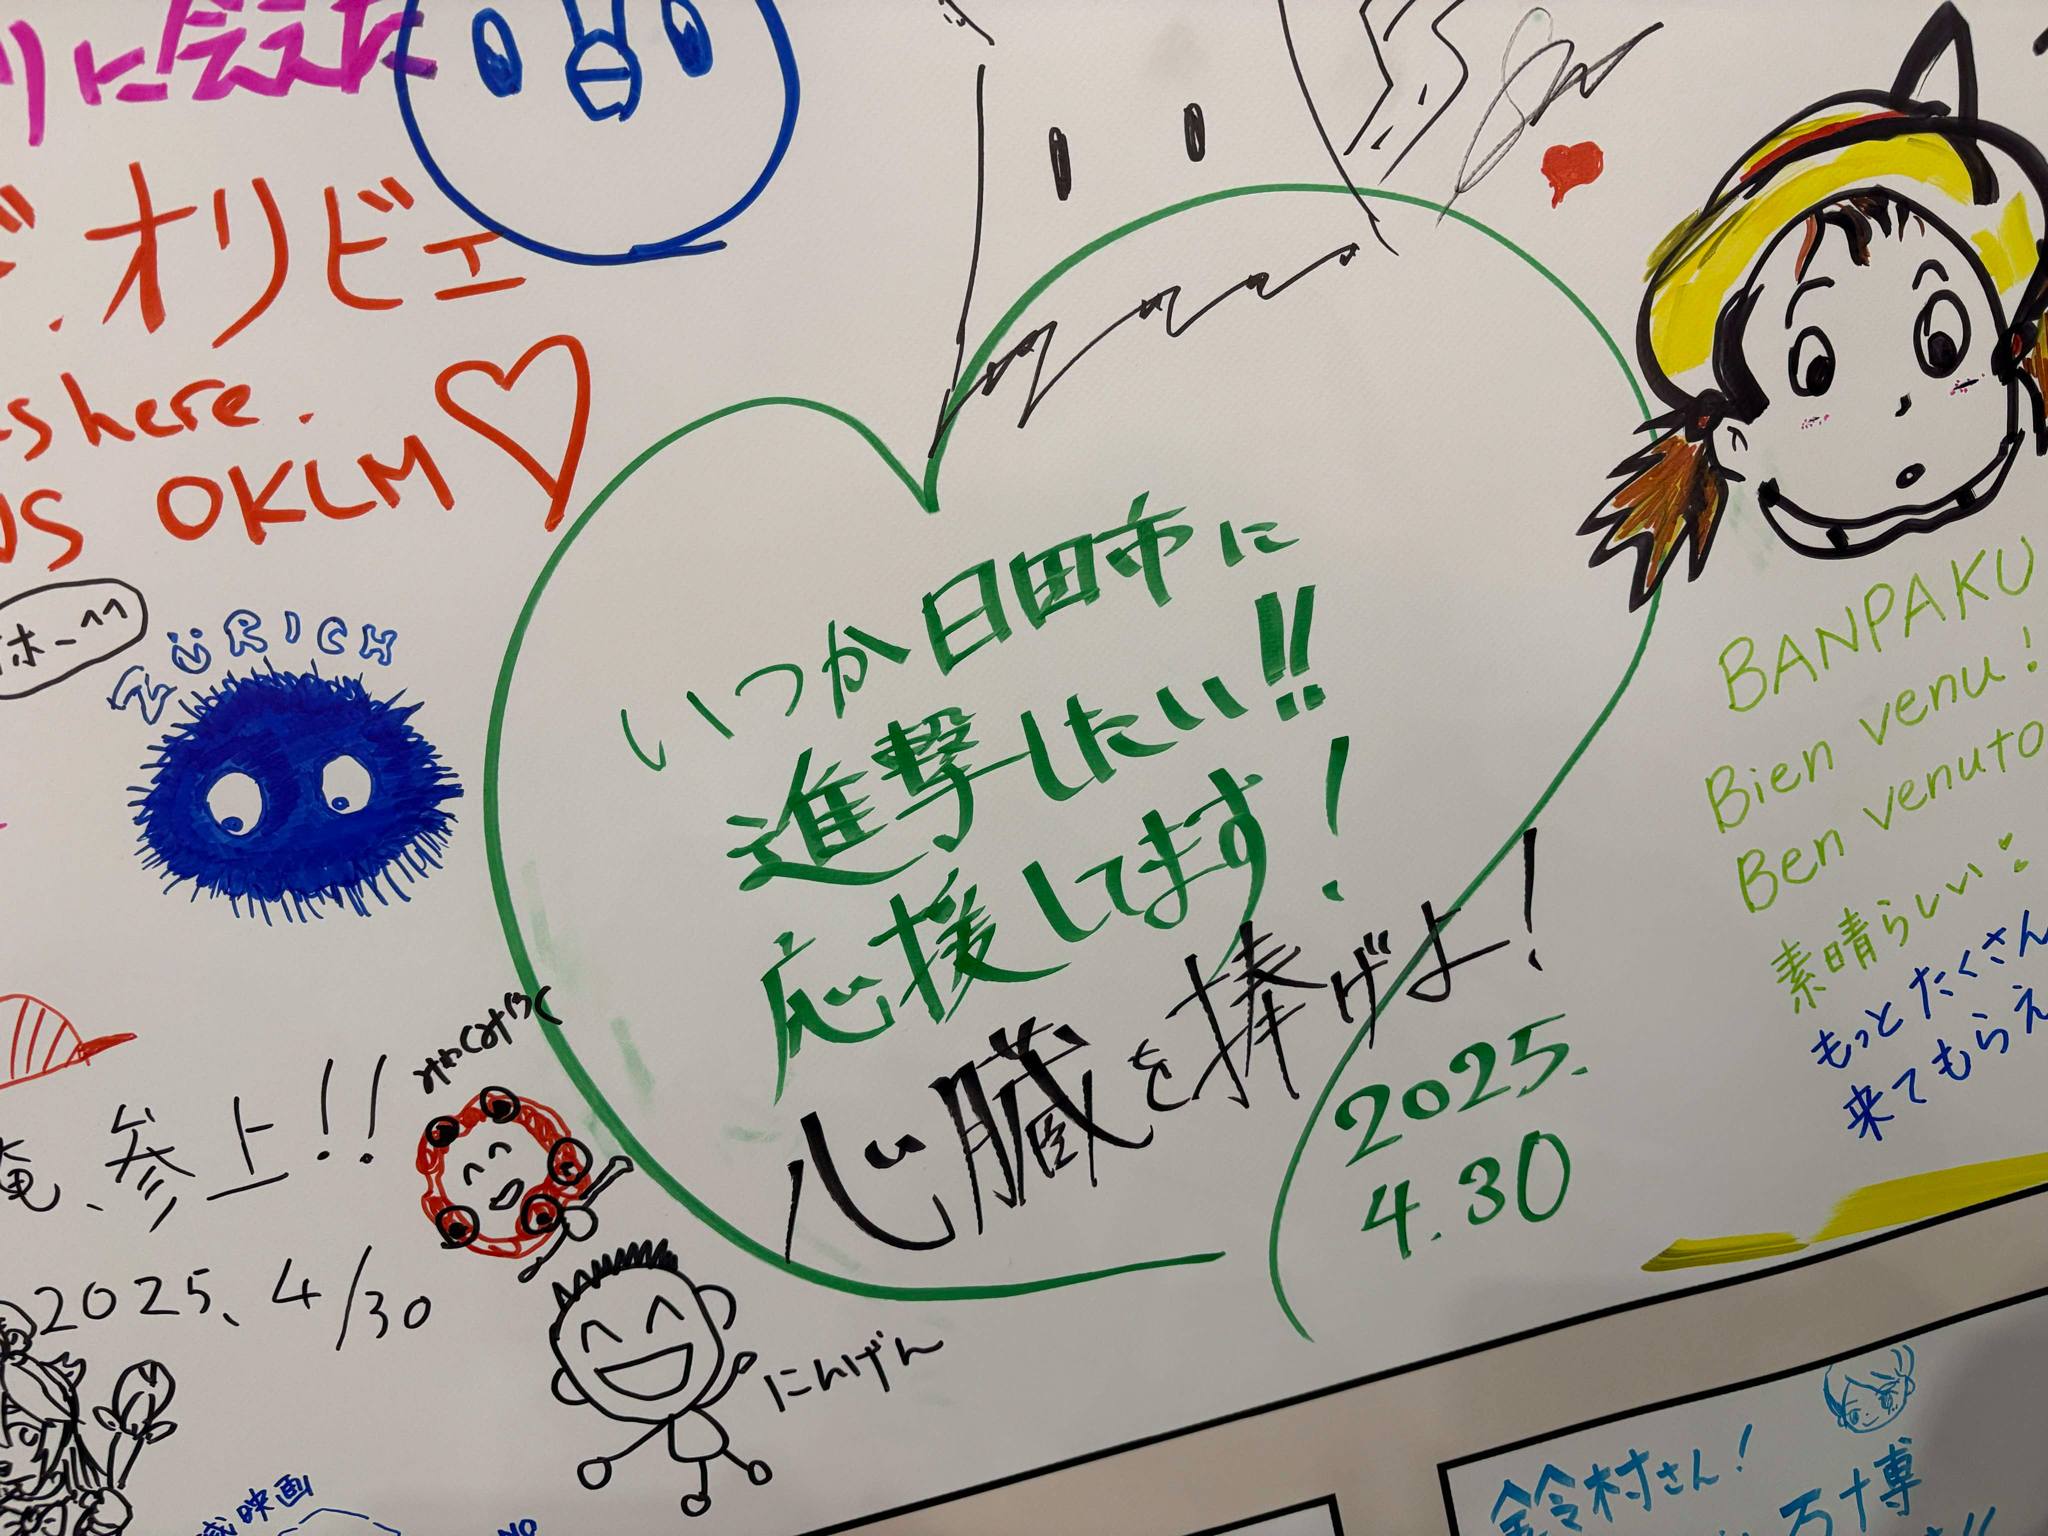 リに会えた
オリビエ
here.
OKLM
ホー^^
ZÜRICH
いつか日田市に
進撃したい!!
応援してます!
心臓を捧げよ!
2025.
4.30
BANPAKU
Bien venu!
Ben venuto
素晴らしい
もっとたくさん
来てもらえ
みゃくみゃく
俺、参上!!
2025、4/30
にんげん
映画
鈴村さん!
万博